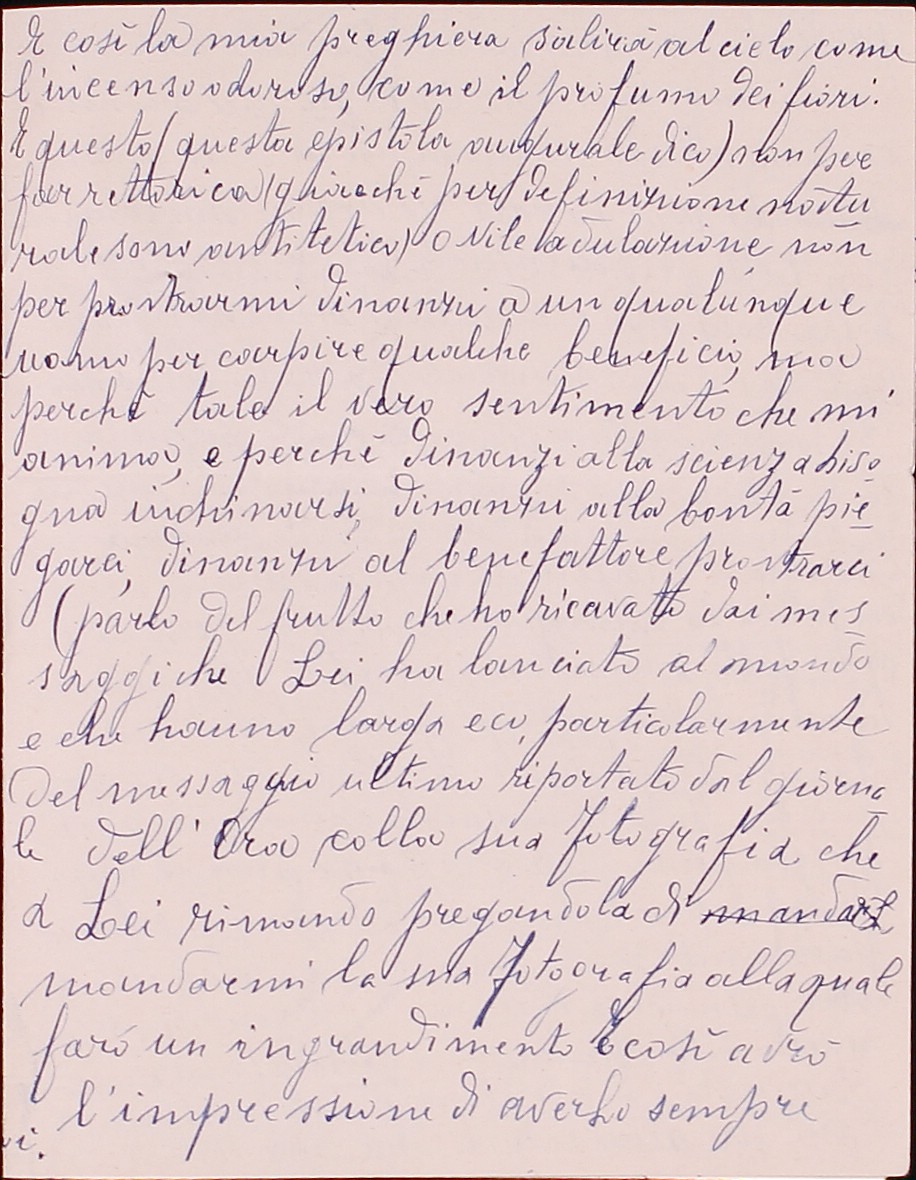 E così la mia preghiera salirà al cielo come
l'incenso odoroso, come il profumo dei fiori.
E questo (questa epistola augurale dico) non per
far rettorica (giacché per definizione natu
rale sono antitetico) o vile adulazione, non
per prostrarmi dinanzi a un qualunque
uomo per carpire qualche beneficio, ma
perché tale il vero sentimento che mi
anima, e perché dinanzi alla scienza biso
gna inchinarsi, dinanzi alla bontà pie
garci, dinanzi al benefattore prostrarci
(parlo del frutto che ho ricavato dai mes
saggi che Lei ha lanciato al mondo
e che hanno larga eco, particolarmente
del messaggio ultimo riportato dal giorna
le dell'Ora colla sua fotografia che
a Lei rimando pregandola di mandar
mandarmi la sua fotografia alla quale
farò un ingrandimento E così avrò
l'impressione di averLo sempre
vi.